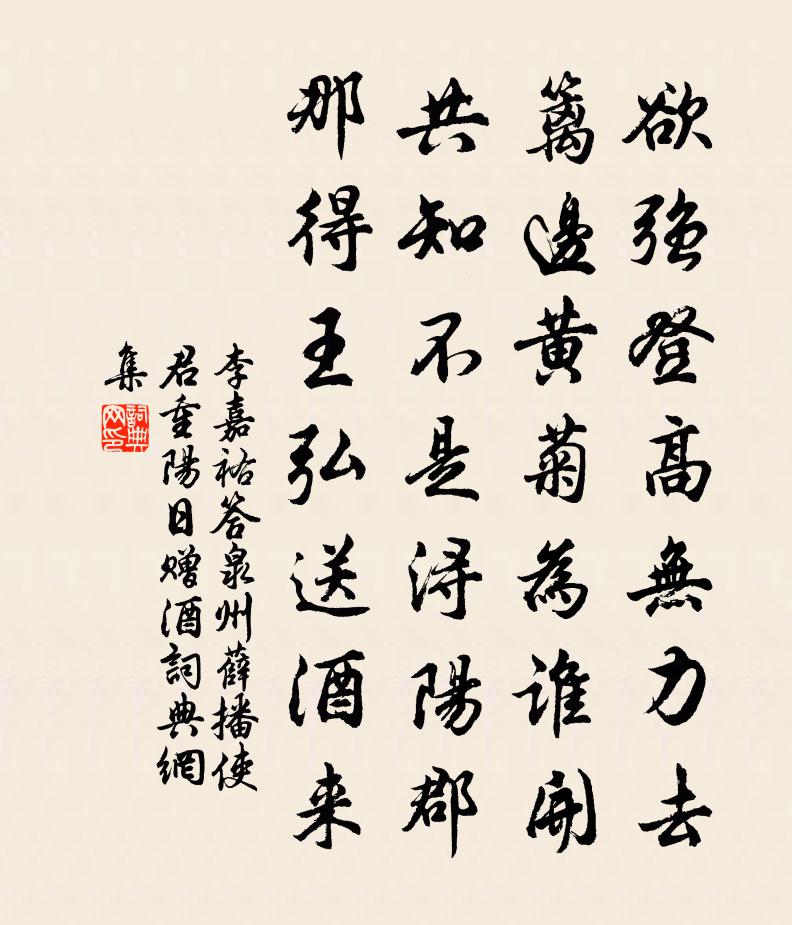 欲強登高無力去
籬邊黃菊為誰開
共知不是潯陽郡
那得王弘送酒来
李嘉祐答泉州薛播使
君重陽日贈酒詞典網
集
詞典网印